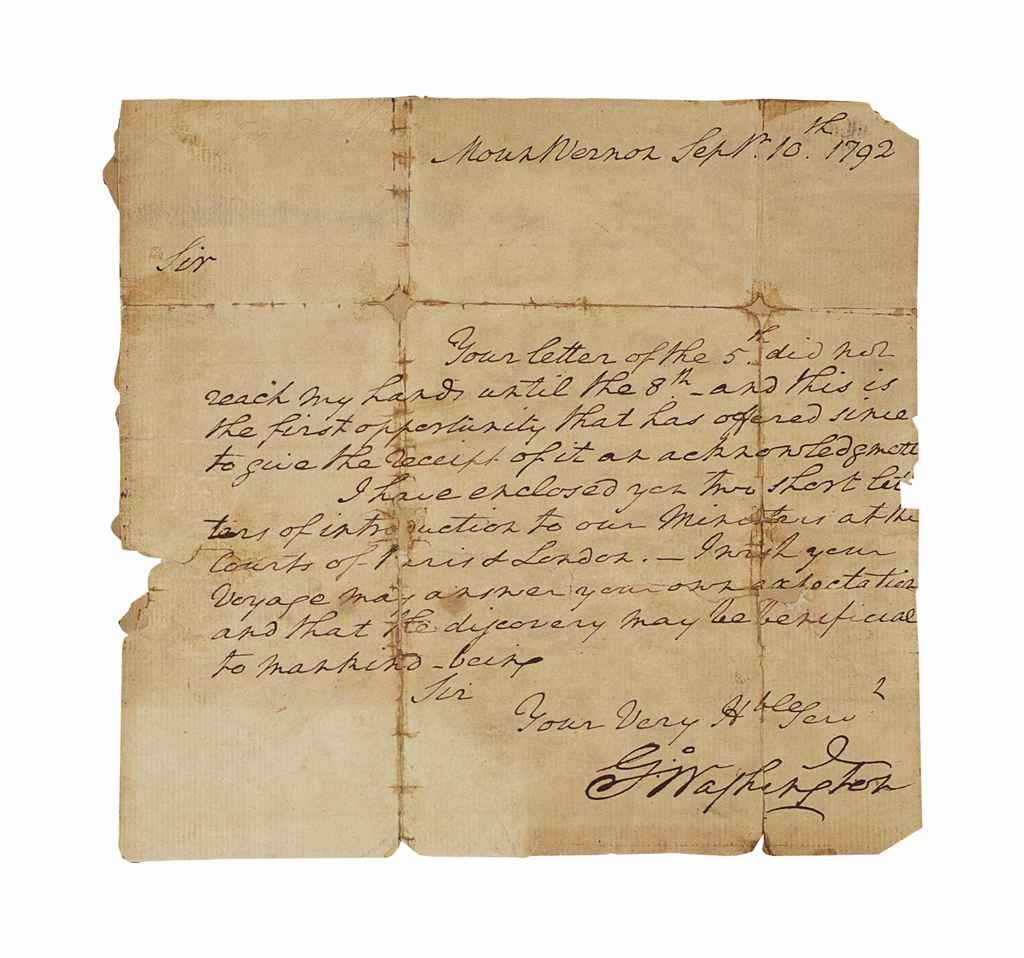 Mount Vernon Sepbr. 10.th 1792
Sir
Your letter of the 5.th did not
reach my hands until the 8th - and this is
the first opportunity that has offered since
to give the receipt of it an acknowledgment
I have enclosed you two short let
ters of introduction to our Ministers at the
Courts of Paris & London. - I wish your
Voyage may answer your own expectation
and that the discovery may be beneficial
to mankind - being
Sir
Your Very Hble Serv t
Go Washington